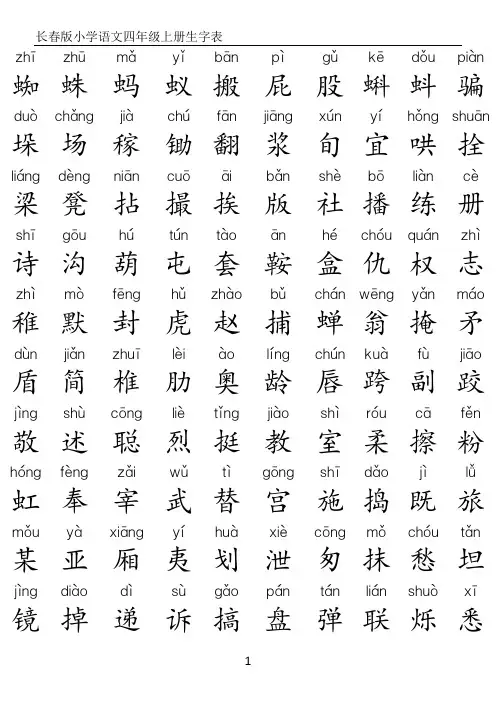 长春版小学语文四年级上册生字表
zhī zhū mǎ yǐ bān pì gǔ kē dǒu piàn
蜘 蛛 蚂 蚁 搬 屁 股 蝌 蚪 骗
duò chǎng jià chú fān jiāng xún yí hǒng shuān
垛 场 稼 锄 翻 浆 旬 宜 哄 拴
liáng dèng niān cuō āi bǎn shè bō liàn cè
梁 凳 拈 撮 挨 版 社 播 练 册
shī gōu hú tún tào ān hé chóu quán zhì
诗 沟 葫 屯 套 鞍 盒 仇 权 志
zhì mò fēng hǔ zhào bǔ chán wēng yǎn máo
稚 默 封 虎 赵 捕 蝉 翁 掩 矛
dùn jiǎn zhuī lèi ào líng chún kuà fù jiāo
盾 简 椎 肋 奥 龄 唇 跨 副 跤
jìng shù cōng liè tǐng jiào shì róu cā fěn
敬 述 聪 烈 挺 教 室 柔 擦 粉
hóng fèng zǎi wǔ tì gōng shī dǎo jì lǚ
虹 奉 宰 武 替 宫 施 捣 既 旅
mǒu yà xiāng yí huà xiè cōng mǒ chóu tǎn
某 亚 厢 夷 划 泄 匆 抹 愁 坦
jìng diào dì sù gǎo pán tán lián shuò xī
镜 掉 递 诉 搞 盘 弹 联 烁 悉
1